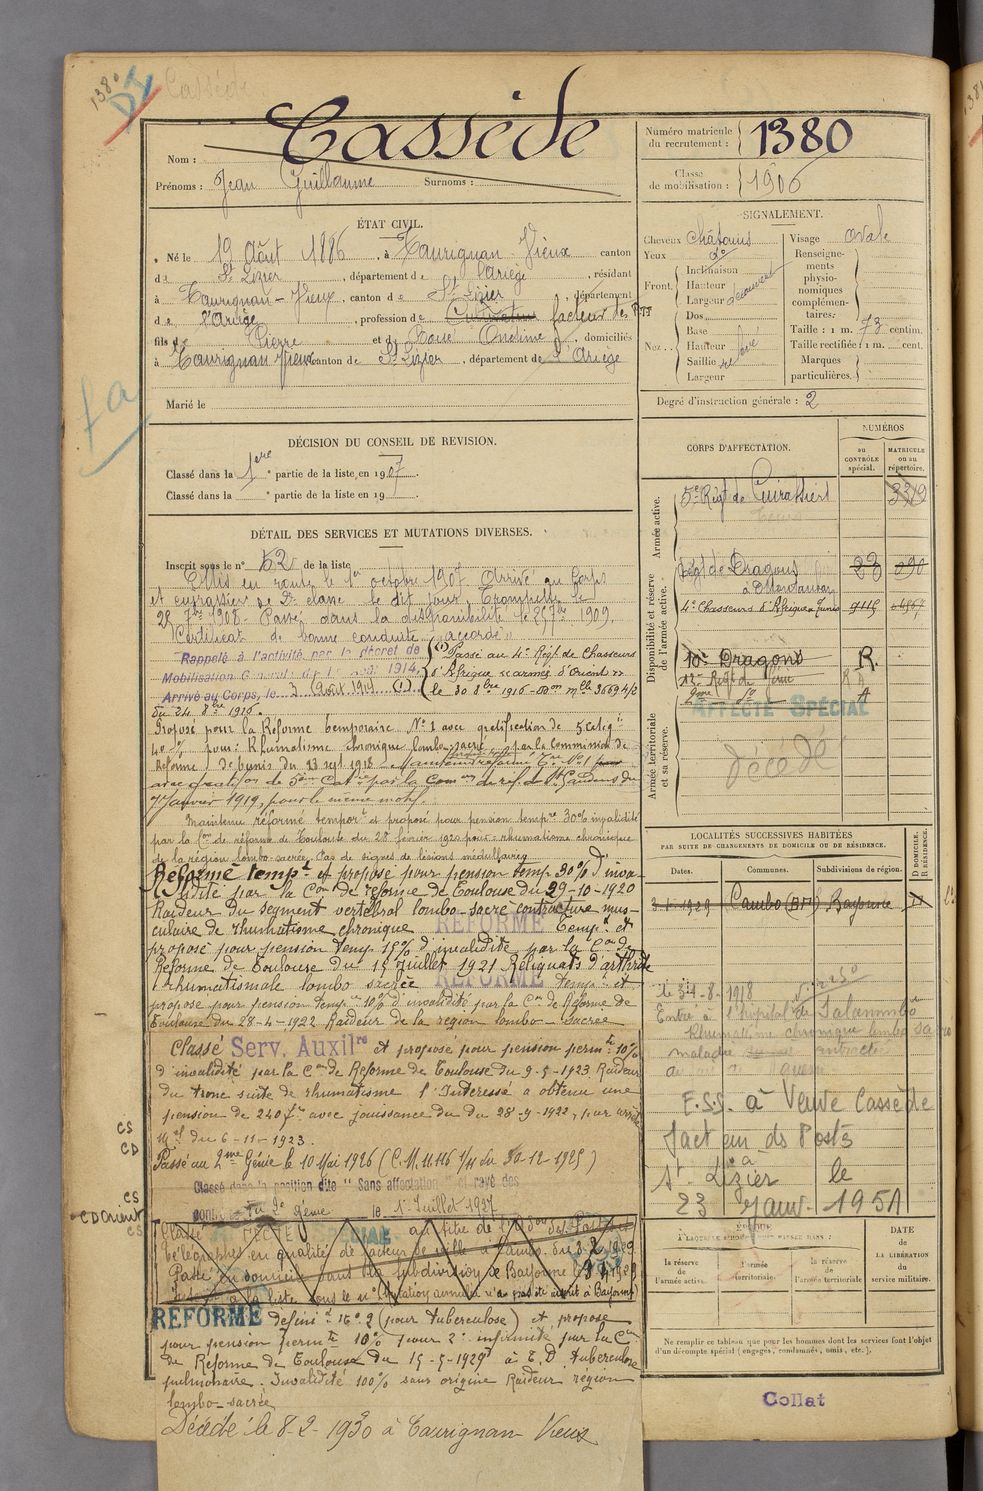 1380
Cassède
Cassède
Nom :
Prénoms : Jean Guillaume Surnoms :
Numéro matricule du recrutement : 1380
Classe de mobilisation : 1906
ÉTAT CIVIL.
Né le 19 Août 1886, à Taurignan-Vieux canton
de St Lizier, département de l'Ariège, résidant
à Taurignan-Vieux, canton de St Lizier, département
de l'Ariège, profession de Cultivateur facteur des PTT
fils de Pierre et de Ondine, domiciliés
à Taurignan Vieux canton de St Lizier, département de l'Ariège
Marié le
SIGNALEMENT.
Cheveux châtains
Yeux do
Front. Inclinaison
Hauteur
Largeur découvert
Nez.. Dos
Base
Hauteur
Saillie relevé
Largeur
Visage ovale
Renseignements physionomiques complémentaires:
Taille : 1 m. 73 centim.
Taille rectifiée : 1 m. cent.
Marques particulières.
Degré d'instruction générale : 2
DÉCISION DU CONSEIL DE REVISION.
Classé dans la 1ere partie de la liste, en 1907.
Classé dans la e partie de la liste en 19
DÉTAIL DES SERVICES ET MUTATIONS DIVERSES.
Inscrit sous le n° 52 de la liste
Mis en route le 1er octobre 1907. Arrivé au Corps
et cuirassier de 2e classe le dit jour. Trompette le
28 7bre 1908. Passé dans la disponibilité le 25 7bre 1909.
Certificat de bonne conduite "accordé"
Rappelé à l'activité par le décret de
Mobilisation Générale du 1er août 1914.
Arrivé au Corps, le 3 Août 1914 (1)
(1) Passé au 4e Régt de Chasseurs
d'Afrique "armée d'Orient"
le 30 8bre 1916
du 24 8bre 1916.
Proposé pour la Réforme temporaire N° 1 avec gratification de 5e catég
40 % pour : Rhumatisme chronique lombo-sacré par la Commission de
Réforme de Tunis du 13 sept 1918 Maintenu réformé Tre N° 1
avec gratifon de 5ème Catie par la Comon de réf. de St Gaudens du
7 Janvier 1919, pour le même motif.
Maintenu réforme temporre et proposé pour pension tempre 30% invalidité
par la Con de réforme de Toulouse du 28 février 1920 pour : rhumatisme chronique
de la région lombo-sacrée. Pas de signes de lésions médullaires
Réformé tempre et proposé pour pension temp 30% d'inva-
lidité par la Con de réforme de Toulouse du 29-10-1920
Raideur du segment vertébral lombo-sacré contracture mus-
culaire de rhumatisme chronique REFORMÉ temp. et
proposé pour pension temp 15% d'invalidité par la Con de
Réforme de Toulouse du 15 Juillet 1921 Reliquats d'arthrite
rhumatismale lombo sacrée REFORMÉ temp. et
proposé pour pension temp 10% d'invalidité par la Con de Réforme de
Toulouse du 28-4-1922 Raideur de la région lombo-sacrée
Classé Serv. Auxilre et proposé pour pension permte 10%
d'invalidité par la Con de Réforme de Toulouse du 9-5-1923 Raideur
du tronc suite de rhumatisme l'Intéressé a obtenu une
pension de 240 f avec jouissance du 28-4-1922, par arrêté
Mel du 6-11-1923.
Passé au 2me Génie le 10 Mai 1926
Classé dans la position dite "Sans affectation" et rayé des
cont du 2e génie le 1er Juillet 1927
Classé AFFECTÉ SPÉCIAL au titre de
Télégraphes en qualité de facteur de ville à Cambo
Passé en domicile dans la subdivision de Bayonne
REFORMÉ définit n° 2 (pour tuberculose) et proposé
pour pension permte 10% pour 2e infirmité par la Con
de Réforme de Toulouse du 15-5-1929 à T.D. tuberculose
pulmonaire. Invalidité 100% sans origine Raideur région
lombo-sacrée
Décédé le 8-2-1930 à Taurignan Vieux
CS
CD
CS
CD Orient
CS
CORPS D'AFFECTATION.
NUMÉROS
au CONTRÔLE spécial.
MATRICULE ou au répertoire.
Armée active.
5e Régt de Cuirassiers
Tours
3319
Disponibilité et réserve de l'armée active.
Régt de Dragons
à Montauban
23
4e Chasseurs d'Afrique Tunis
10e Dragons R.
2ème do A
AFFECTÉ SPÉCIAL
Armée territoriale et sa réserve.
décédé
LOCALITÉS SUCCESSIVES HABITÉES
PAR SUITE DE CHANGEMENTS DE DOMICILE OU DE RÉSIDENCE.
Dates. Communes. Subdivisions de région. D DOMICILE. R RÉSIDENCE.
1929 Cambo (BP) Bayonne D
8-1918
Entré à l'hôpital de Salammbo
Rhumatisme chronique lombo sacré
maladie contractée
F.S.S. à Veuve Cassède
facteur ds Posts
à
St Lizier le
23 Janv. 1951
ÉPOQUE
À LAQUELLE L'HOMME DOIT PASSER DANS :
la réserve de l'armée active.
l'armée territoriale.
la réserve de l'armée territoriale
DATE DE LA LIBÉRATION du service militaire.
Ne remplir ce tableau que pour les hommes dont les services font l'objet
d'un décompte spécial (engagés, condamnés, omis, etc.).
Collat